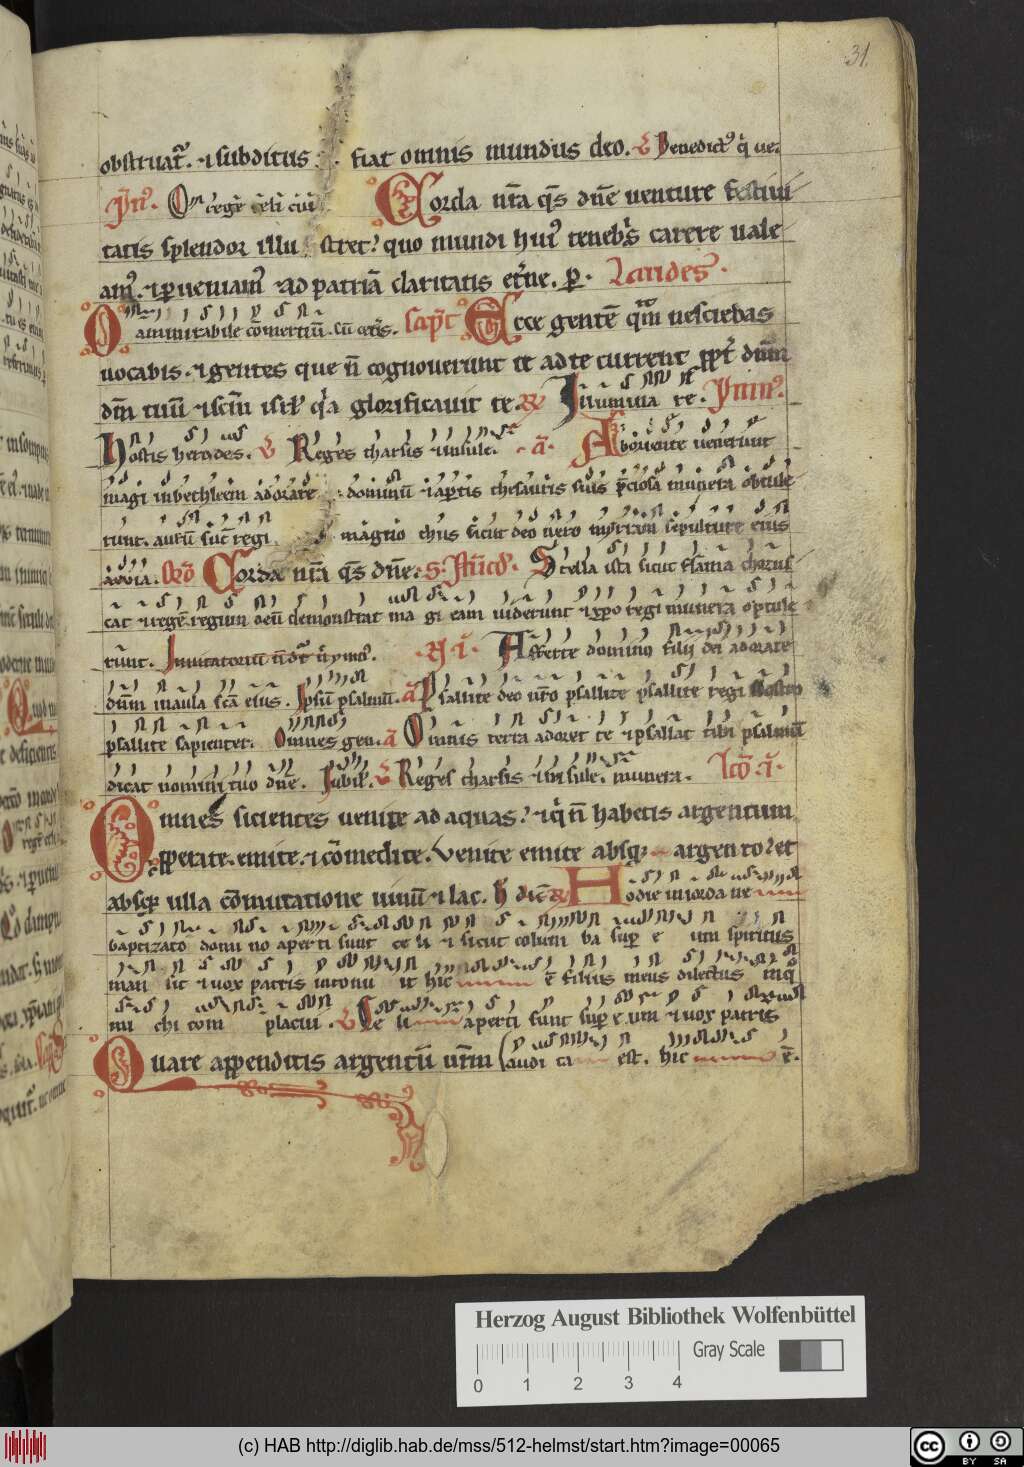 31.
obstruat᷑. ⁊ subditus fiat omnis mundus deo. V Benedict᷒ q̇ ue.
ymꝰ. cuͫ Corda nr̄a q̄s dn̄e venture festiui
tatis splendor illustret? quo mundi huiꝰ tenebris carere uale
amꝰ. ⁊ ꝑueniamꝰ ad patriā claritatis et̄ne. ꝑ. Laudes.
O ammirabile cōmertiū. cū cet̄is. capit̄ Ecce gentē quā nesciebas
uocabis. ⁊ gentes que n̄ cognouerunt te ad te current ꝓpt̄ dn̄m
dm̄ tuū ⁊ scm̄ isrl̄ q̇a glorificauit te. Illumina re. ymnꝰ.
Hostis herodes. V Reges tharsis ⁊ insule. a̅. Ab oriente uenerunt
magi in bethleem adorare dominū ⁊ aꝑtis thesauris suis p̄ciosa munera obtule
runt. aurū sic̄ regi magno thus sicut deo uero myrram sepulture eius
aeuia. Orō Corda nr̄a q̄s dn̄e. Stella ista sicut flāma chorus
cat ⁊ regē regum deū demonstrat magi eam uiderunt ⁊ xp̄o regi munera optule
rūnt. Inuitatoriū n̄ dr̄ n̄ ymnꝰ. Afferte domino filii dei adorate
dn̄m in aula sc̄a eius. Ipsū psalmū. a̅ Psallite deo nr̄o psallite psallite regi nostro
psallite sapienter. Omnes gen. a̅ Omnis terra adoret te ⁊ psallat tibi psalmū
dicat nomini tuo dn̄e. Jubil. V Reges tharsis ⁊ insule. munera. Lcō .i.
Omnes sicientes uenite ad aquas? ⁊ q̇ n̄ habetis argentum
ꝓperate. emite. ⁊ cōmedite. Venite emite absq; argento? et
absq; ulla cōmutatione uinū ⁊ lac. h̄ dic̄ Hodie in iordane
baptizato domino aperti sunt celi ⁊ sicut columba suꝑ eum spiritus
mansit ⁊ uox patris intonuit hic ē filius meus dilectus in q̊
michi complacui. V Celi aperti sunt suꝑ eum ⁊ uox patris
Quare appenditis argentū urm̄ audita est. hic ē.
Herzog August Bibliothek Wolfenbüttel
Gray Scale
0 1 2 3 4
(c) HAB http://diglib.hab.de/mss/512-helmst/start.htm?image=00065
cc BY SA